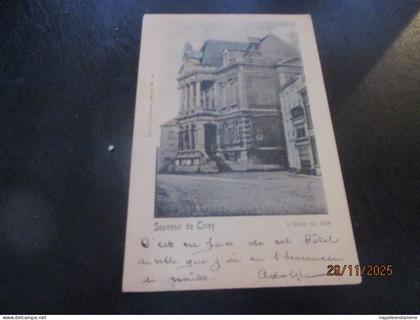 Souvenir de Ciney
L'Hôtel de ville
C'est en face de cet Hôtel
de ville que j'ai eu l'honneur
de
Adolphe
29/11/2025
www.napoleondamme.com